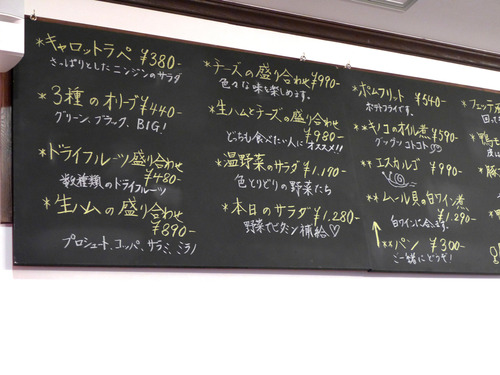 *キャロットラペ ¥380-
さっぱりとしたニンジンのサラダ
*3種のオリーブ ¥440-
グリーン、ブラック、BIG!
*ドライフルーツ盛り合わせ
¥480-
数種類のドライフルーツ
*生ハムの盛り合わせ
¥890-
プロシュート、コッパ、サラミ、ミラノ
*チーズの盛り合わせ ¥990-
色々な味を楽しめます。
*生ハムとチーズの盛り合わせ
¥980-
どっちも食べたい人にオススメ!!
*温野菜のサラダ ¥1,190-
色とりどりの野菜たち
*本日のサラダ ¥1,280-
野菜でビタミン補給♡
*ポムフリット ¥540-
ポテトフライです。
*キノコのオイル煮 ¥590-
グッツグツコトコト
*エスカルゴ ¥990-
*ムール貝の白ワイン煮
¥1,290-
白ワインに合います。
↑**パン ¥300-
ご一緒にどうぞ!
*フィッシュ
*鴨
*豚